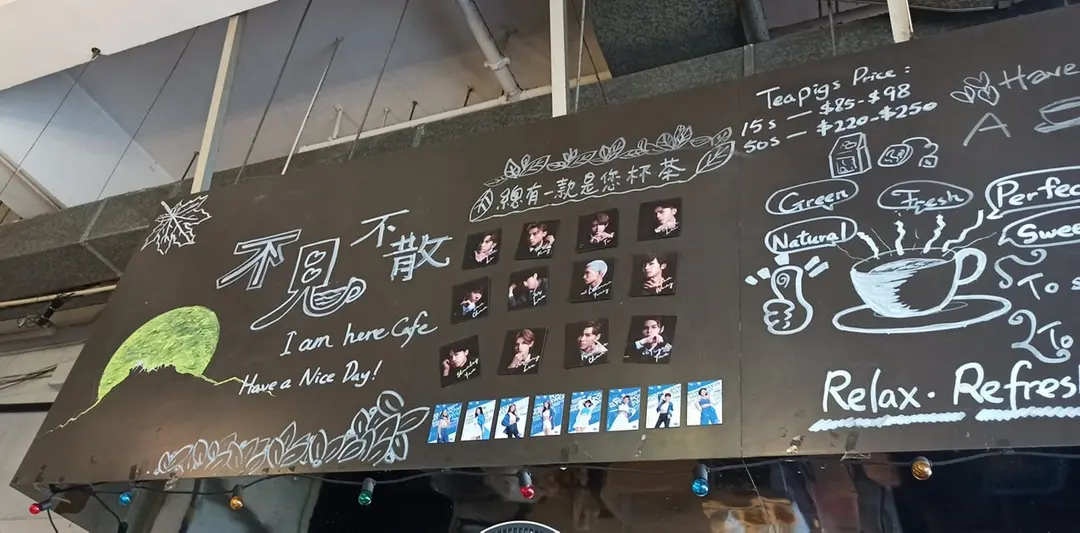 不見不散
I am here Cafe
Have a Nice Day!
總有一款是您杯茶
Teapigs Price:
15s — $85-$98
50s — $220-$250
Have
A
Green
Fresh
Natural
To
To
Relax. Refres